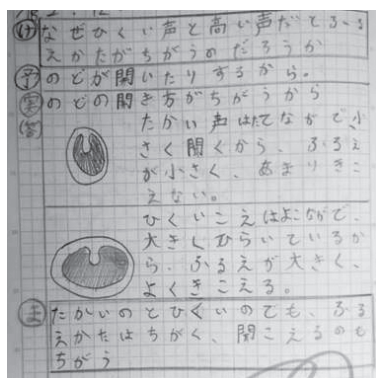 け なぜひくい声と高い声だとふる
えかたがちがうのだろうか
予 のどが開いたりするから。
実 のどの開き方がちがうから
答 たかい声はたてながで小
さく開くから、ふるえ
が小さく、あまりきこ
えない。
ひくいこえはよこながで、
大きくひらいているか
ら、ふるえが大きく、
よくきこえる。
ま たかいのとひくいのでも、ふる
えかたはちがく、聞こえるのも
ちがう